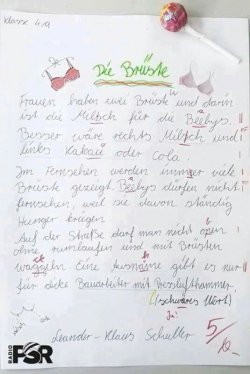 Klasse 4a
Die Brüste
Frauen haben zwei Brüste und darin
ist die Miltsch für die Beebys.
Besser wäre rechts Miltsch und
links Kakau oder Cola.
Im Fernsehen werden immer viele
Brüste gezeigt. Beebys dürfen nicht
fernsehen, weil sie davon ständig
Hunger kriegen.
Auf der Straße darf man nicht open
ohne rumlaufen und mit Brüsten
waggeln. Eine ausname gibt es nur
für dicke Bauarbeiter mit Pressluffthammer.
(schweres Wort)
Ja!
Leander-Klaus Schuller
5/6-
RADIO PSR